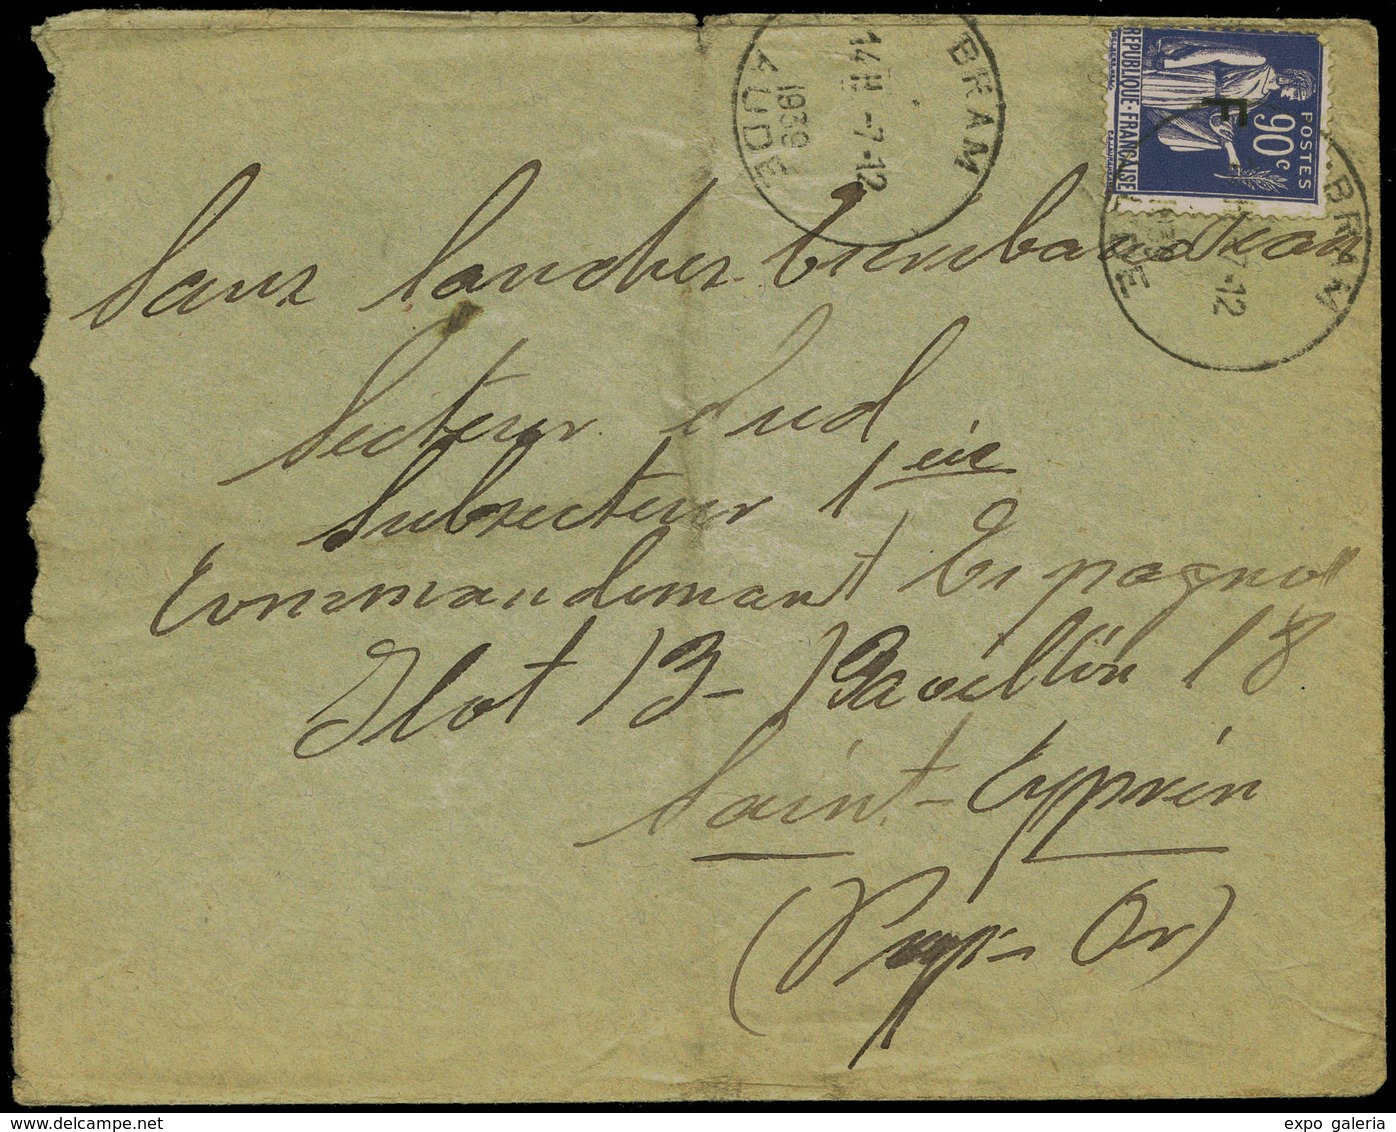 BRAM
14 H -7-12
1939
AUDE
REPUBLIQUE-FRANÇAISE
POSTES
90c
F
BRAM
7-12
Sanz Sanchez
Secteur Sud
Subsecteur 1
Commandemant Espagnol
Ilot 13- Pavillón 18
Saint-Cyprien
(Pyr- Or)
expo galeria